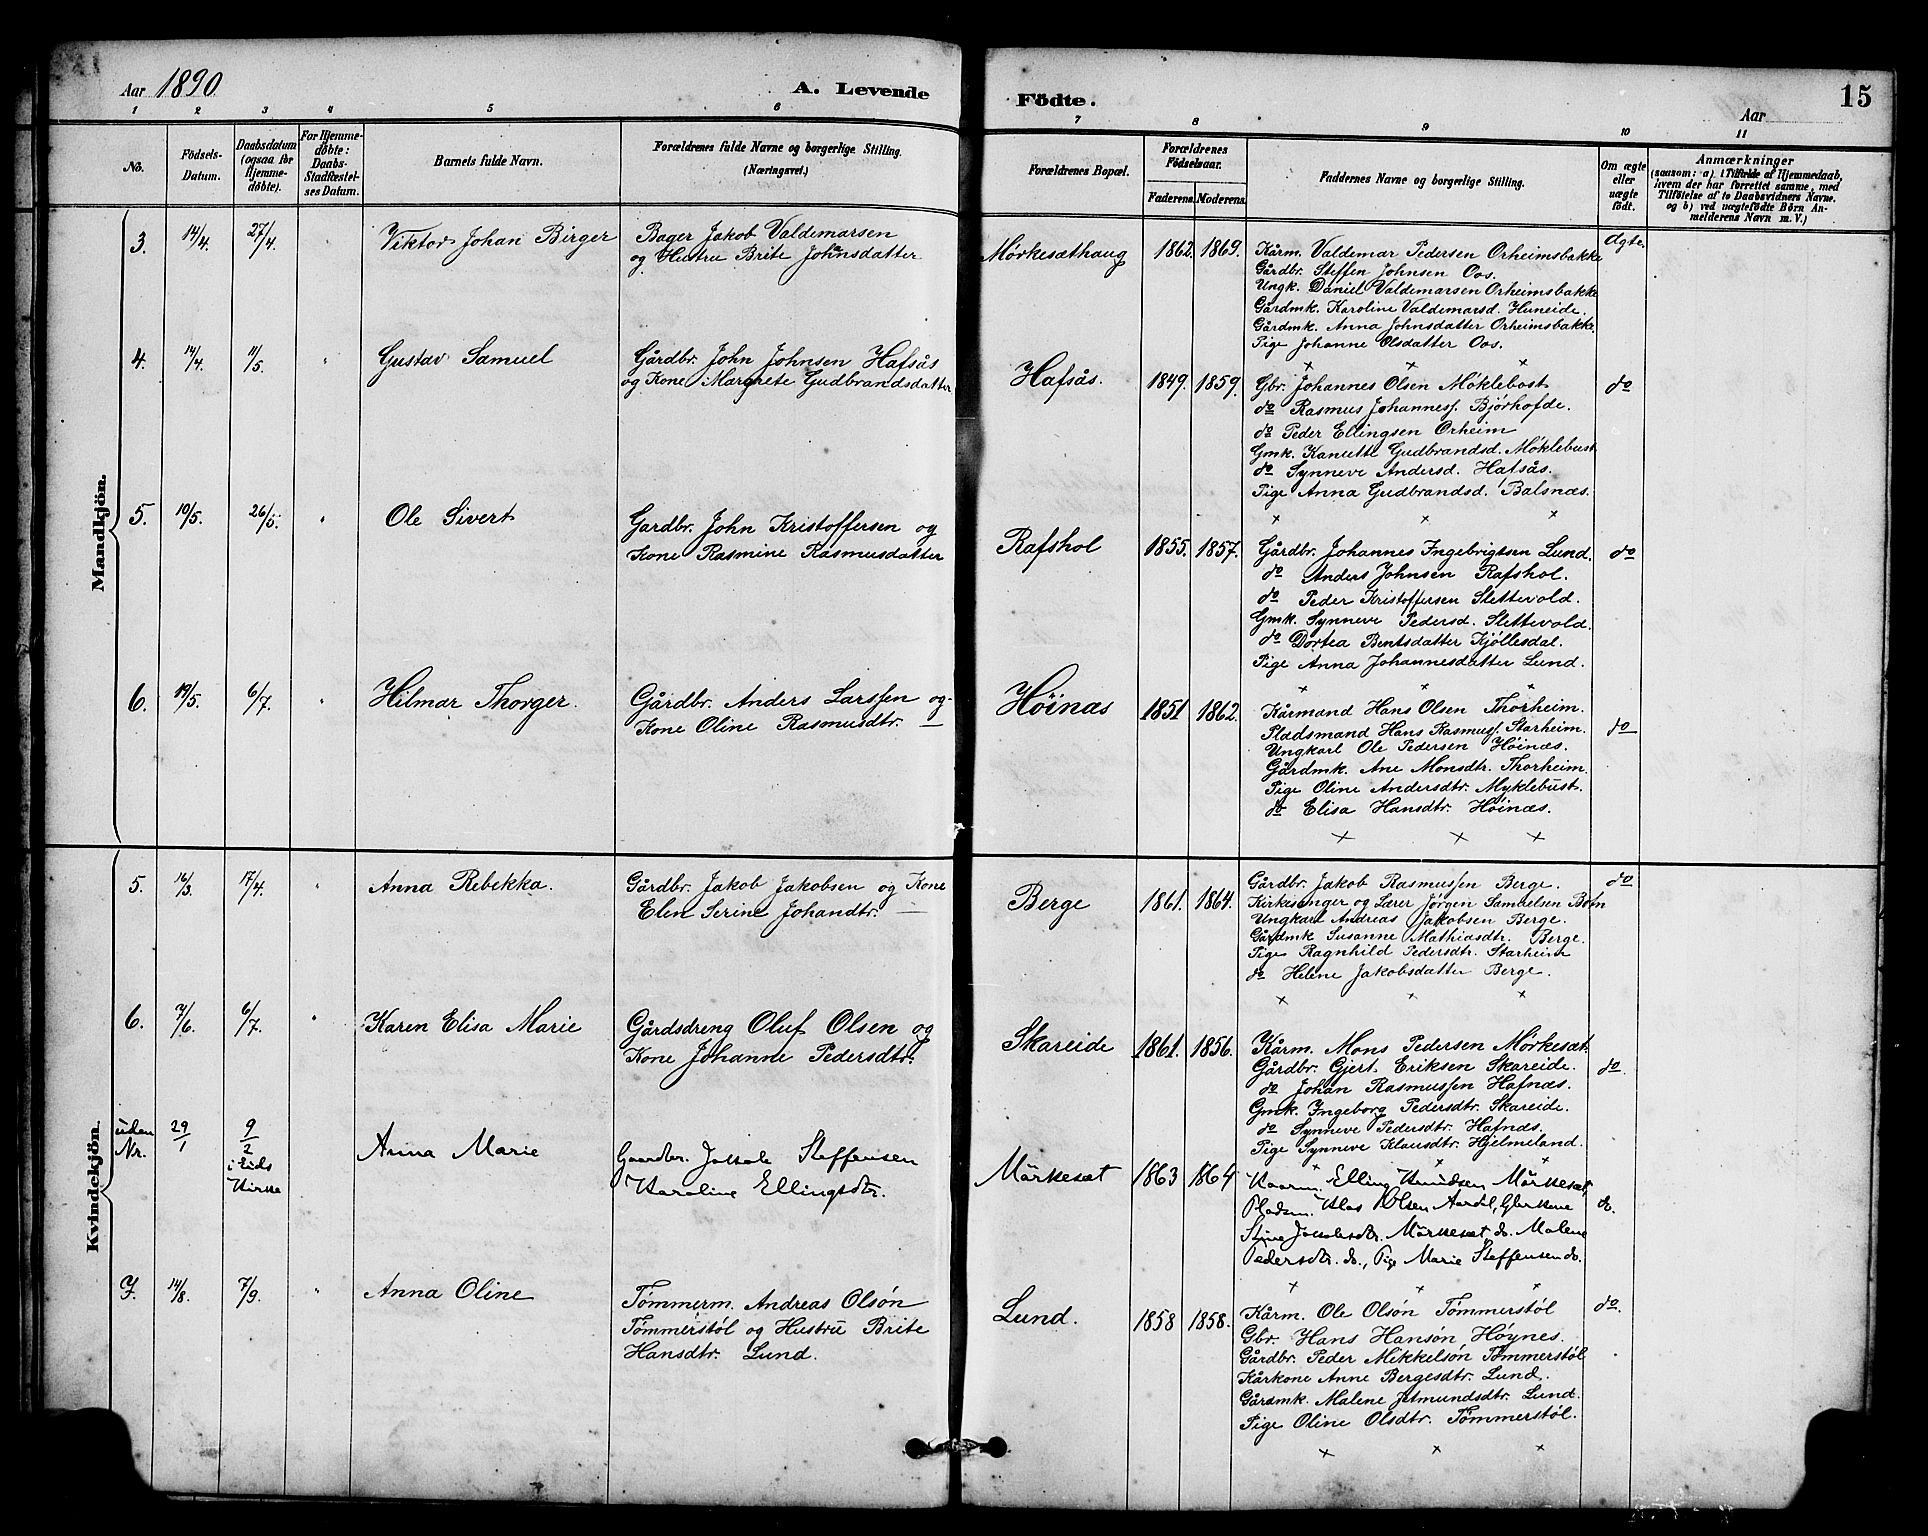 Aar 1890
A. Levende
Födte.
Aar
15
1 2 3 4 5 6 7 8 9 10 11
No.
Födsels-
Datum.
Daabsdatum
(ogsaa for
Hjemme-
døbte).
For Hjemme-
døbte:
Daabs-
Stadfæstel-
ses Datum.
Barnets fulde Navn.
Forældrenes fulde Navne og borgerlige Stilling.
(Næringsvei.)
Forældrenes Bopæl.
Forældrenes
Födselsaar.
Faderens. Moderens.
Faddernes Navne og borgerlige Stilling.
Om ægte
eller
uægte
født.
Anmærkninger
(saasom: a) i Tilfælde af Hjemmedaab,
hvem der har forrettet samme, med
Tilföielse af to Daabsvidners Navne,
og b) ved uægtefödte Börn An-
melderens Navn m. V.)
Mandkjön.
3. 14/4. 27/4. Viktor Johan Birger
Bager Jakob Valdemarsen
og Hustru Brite Johnsdatter
Mørkesæthaug 1862. 1869.
Kårm. Valdemar Pedersen Orheimsbakke
Gårdbr. Steffen Johnsen Oos.
Ungk. Daniel Valdemarsen Orheimsbakke
Gårdmk. Karoline Valdemarsd. Huneide.
Gårdmk. Anna Johnsdatter Orheimsbakke.
Pige Johanne Olsdatter Oos.
ægte.
x x x
4. 14/4. 11/5. " Gustav Samuel
Gårdbr. John Johnsen Hafsås
og Kone Margrete Gudbrandsdatter
Hafsås. 1849. 1859.
Gbr. Johannes Olsen Møklebost
do Rasmus Johanness. Bjørhofde.
do Peder Ellingsen Orheim
Gmk. Kanutte Gudbrandsd. Møklebust
do Synneve Andersd. Hafsås.
Pige Anna Gudbrandsd. Balsnæs.
do
x x x
5. 10/5. 26/5. " Ole Sivert
Gardbr. John Kristoffersen og
Kone Rasmine Rasmusdatter
Rafshol 1855. 1857.
Gårdbr. Johannes Ingebrigtsen Lund.
do Anders Johnsen Rafshol.
do Peder Kristoffersen Slettevold.
Gmk. Synneve Pedersd. Slettevold.
do Dortea Bentsdatter Kjøllesdal.
Pige Anna Johannesdatter Lund.
do
x x x
6. 19/5. 6/7. " Hilmar Thorger.
Gårdbr. Anders Larssen og
Kone Oline Rasmusdtr. —
Høinæs 1851 1862.
Kårmand Hans Olsen Thorheim.
Pladsmand Hans Rasmuss. Starheim.
Ungkarl Ole Pedersen Høinæs.
Gårdmk. Ane Monsdtr. Thorheim.
Pige Oline Andersdtr. Myklebust.
do Elisa Hansdtr. Høinæs.
do
x x x
Kvindekjön.
5. 16/3. 17/4. " Anna Rebekka.
Gårdbr. Jakob Jakobsen og Kone
Elen Serine Johandtr. —
Berge 1861. 1864.
Gårdbr. Jakob Rasmussen Berge.
Kirkesanger og Lærer Jörgen Samuelsen
Ungkarl Andreas Jakobsen Berge.
Gårdmk Susanne Mathiasdtr. Berge.
Pige Ragnhild Pedersdtr. Starheim
do Helene Jakobsdatter Berge.
do
x x x
6. 7/6. 6/7. " Karen Elisa Marie
Gårdsdreng Oluf Olsen og
Kone Johanne Pedersdtr.
Skareide 1861. 1856.
Kårm. Mons Pedersen Mørkesæt.
Gårdbr. Gjert Eriksen Skareide.
do Johan Rasmussen Hafnæs.
Gmk. Ingeborg Pedersdtr. Skareide.
do Synneve Pedersdtr. Hafnæs.
Pige Synneve Klausdtr. Hjelmeland.
do.
x x x
uden
Nr.
29/1 9/2
i Eids
Kirke
Anna Marie
Gaardbr. Jakob Steffensen
Karoline Ellingsdtr.
Mörkesæt 1863 1864
Kaarm. Elling Knudsen Mörkesæt,
Pladsm. Klas Olsen Aardal, Gbrkone
Stine Jakobsdtr. Mörkesæt, do. Malene
Pedersdtr. do., Pige Marie Steffensen do.
do.
x x x
7. 14/8. 7/9. " Anna Oline
Tømmerm. Andreas Olsøn
Tømmerstøl og Hustru Brite
Hansdtr. Lund.
Lund. 1858 1858.
Kårm. Ole Olsøn Tømmerstøl
Gbr. Hans Hansøn Høynes.
Gårdbr. Peder Mikkelsøn Tømmerstøl
Kårkone Anne Bergesdtr. Lund.
Gårdmk. Malene Jetmundsdtr. Lund.
Pige Oline Olsdtr. Tømmerstøl.
do.
x x x